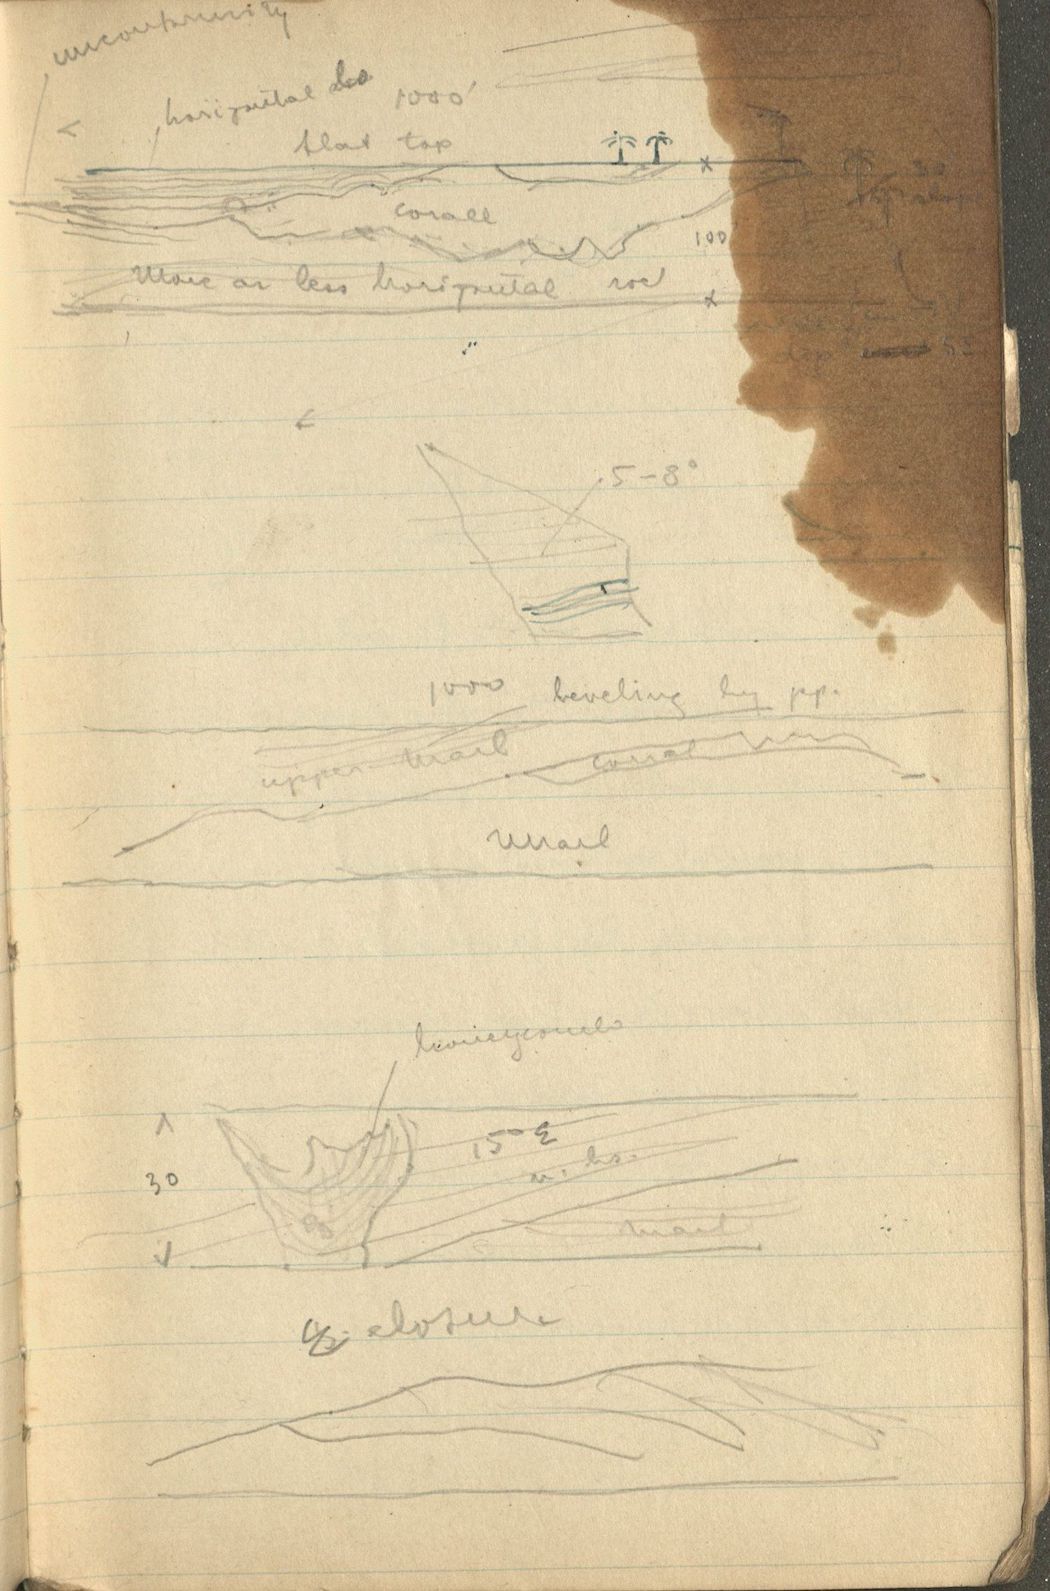 unconformity
horizontal
1000'
flat top
30
slope
corall
100
More or less horizontal roc
dep
5-8°
1000 beveling by pp.
upper marl corral
Marl
honeycomb
15° E
30
marl
closure